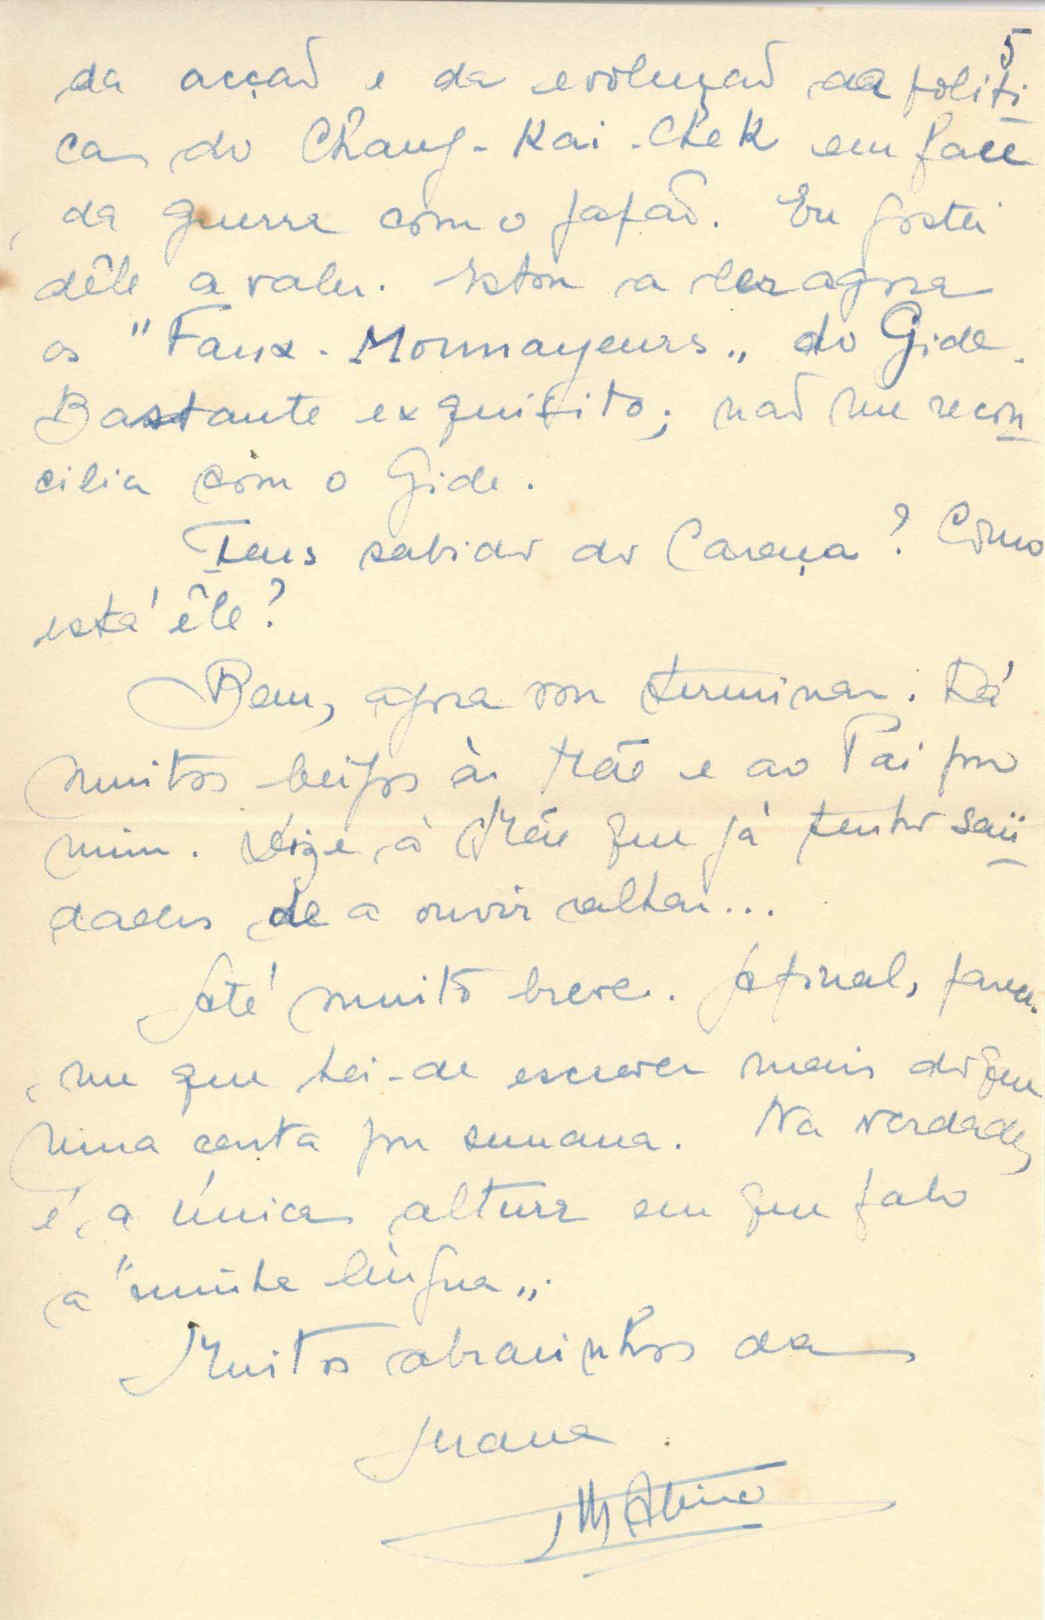 5
da acção e da evolução da políti
ca do Chang-Kai-Chek em face
da guerra com o Japão. Eu gostei
dêle a valer. Estou a ler agora
os "Faux-Monnayeurs" do Gide.
Bastante exquisito; não me recon
cilia com o Gide.
Tens sabido do Caraça? Como
está êle?
Bem, agora vou terminar. Dá
muitos beijos à Mãe e ao Pai por
mim. Dize à Mãe que já tenho saü
dades de a ouvir ralhar...
Até muito breve. Afinal, parece-
me que hei-de escrever mais do que
uma carta por semana. Na verdade,
é a única altura em que falo
a "minha língua".
Muitos abracinhos da